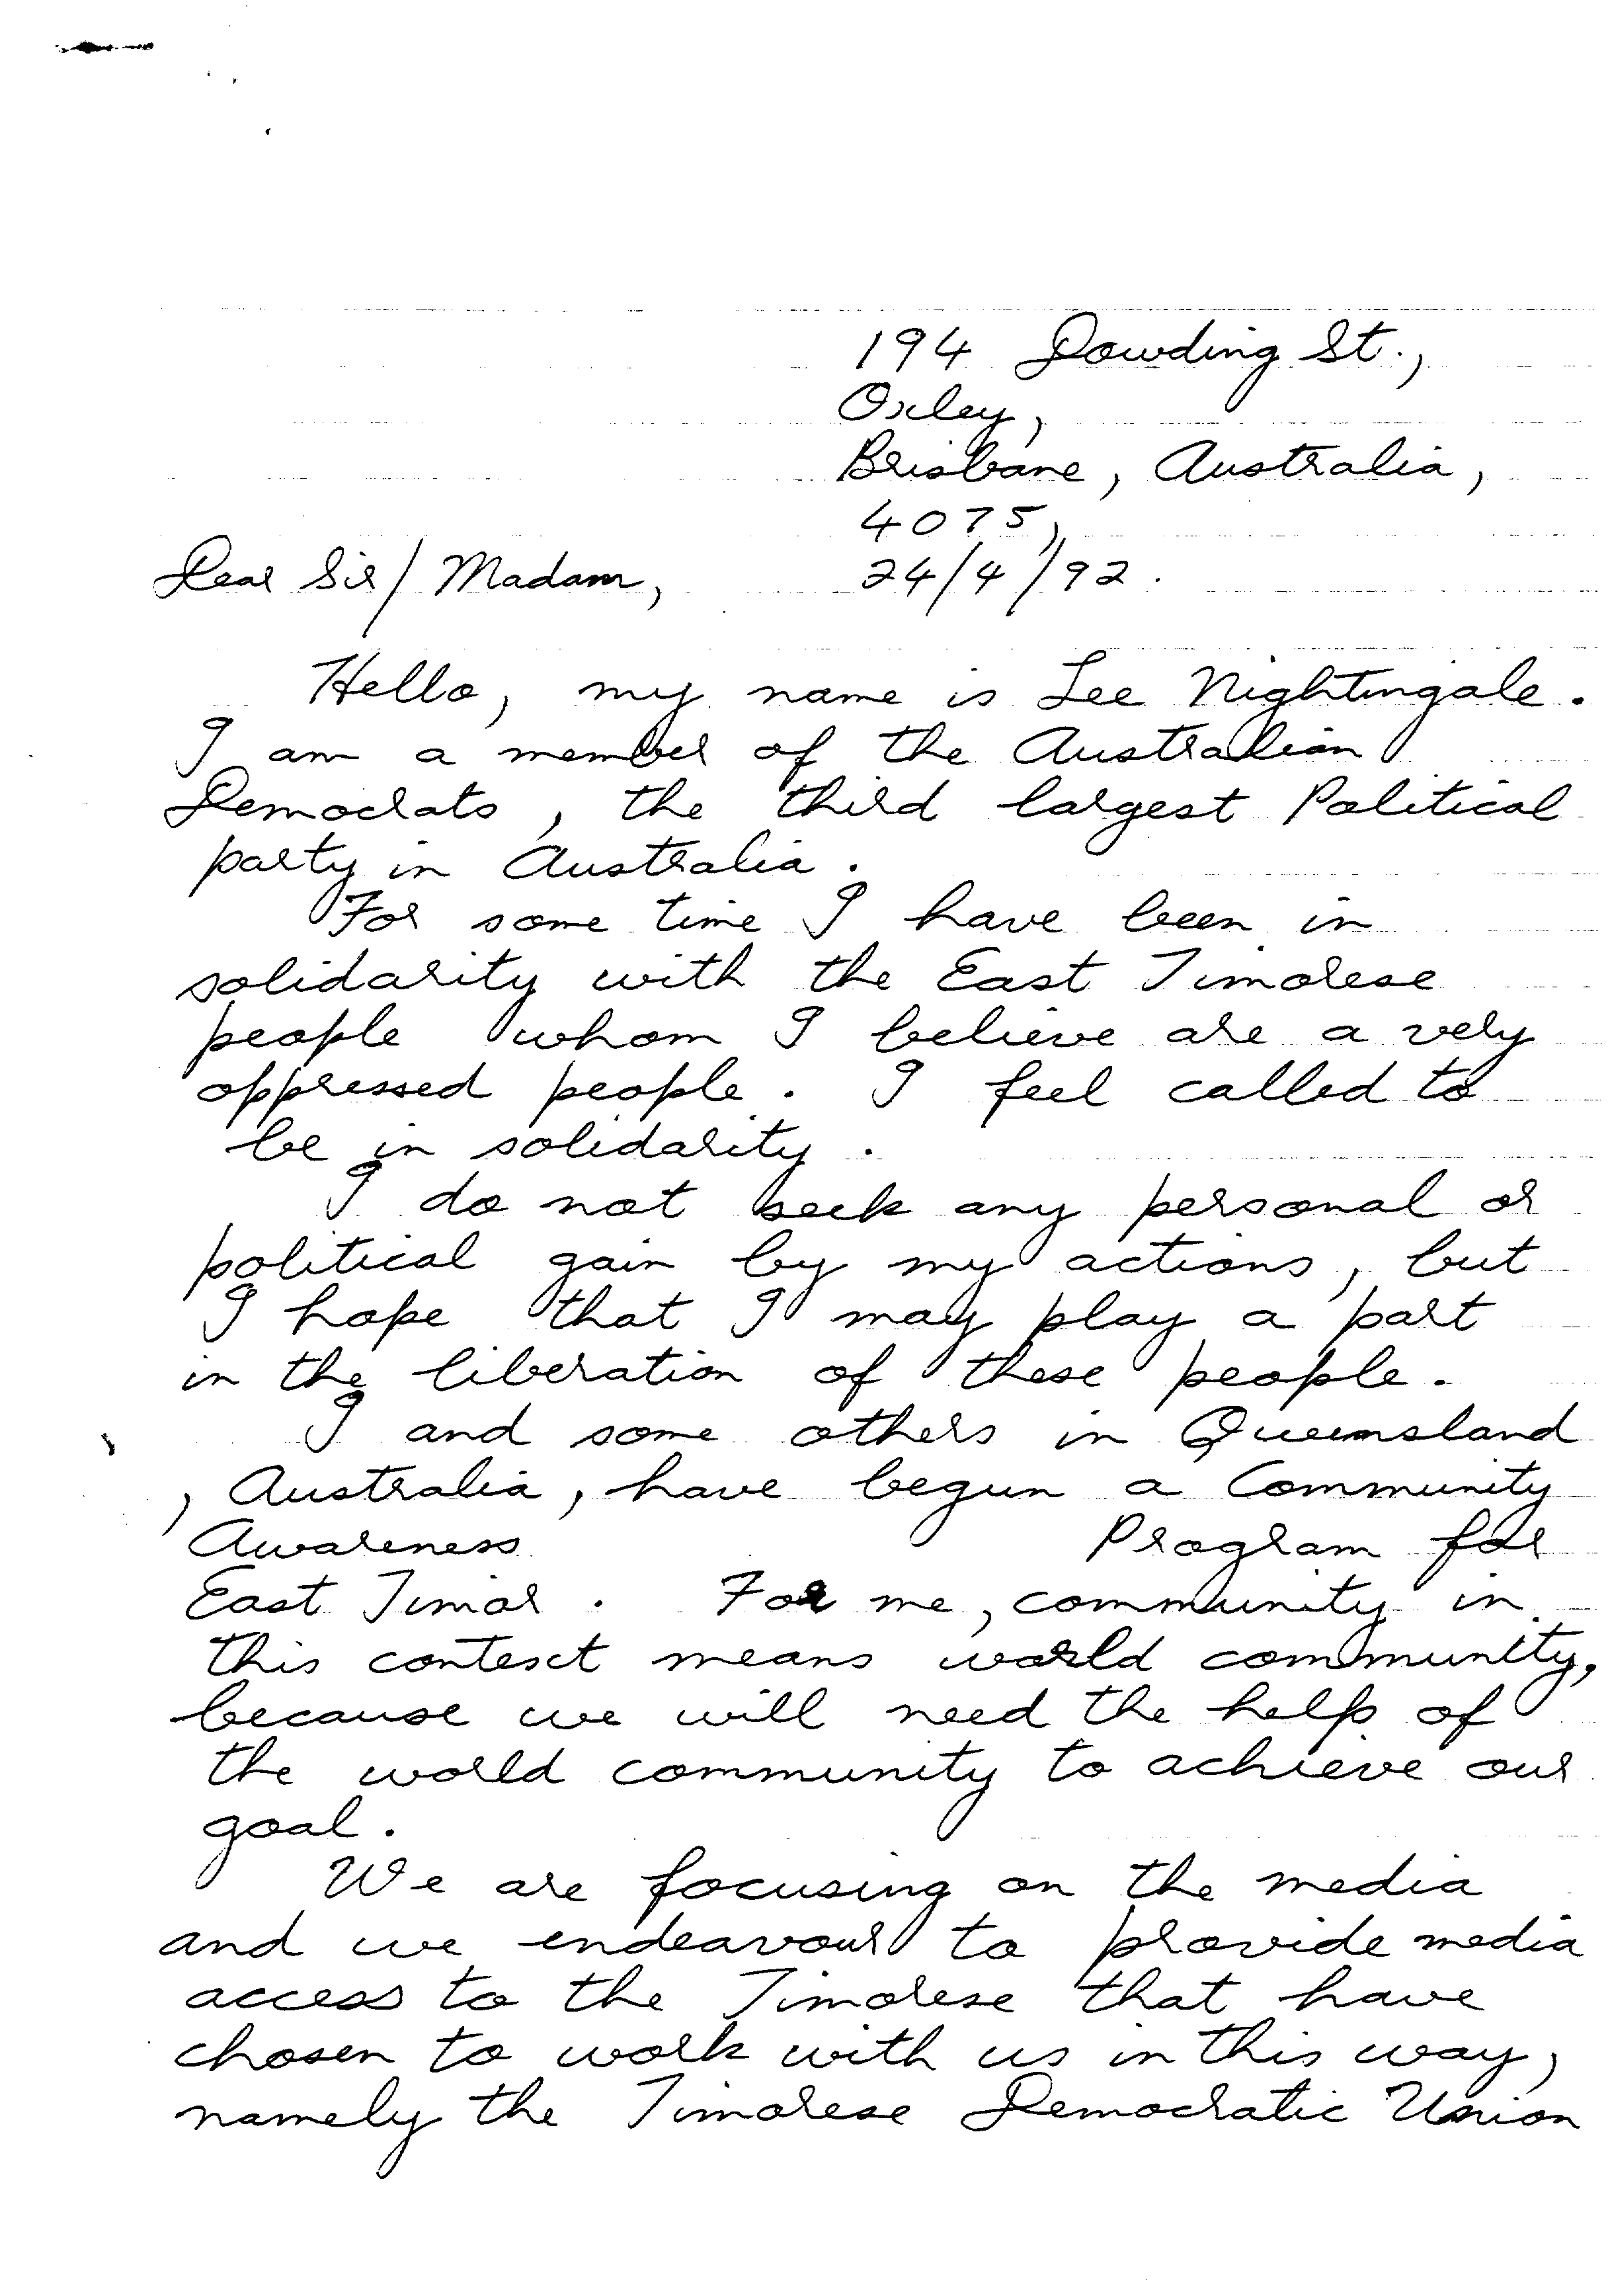 194 Dowding St.,
Oxley,
Brisbane, Australia,
4075,
Dear Sir/Madam, 24/4/92.
Hello, my name is Lee Nightingale.
I am a member of the Australian
Democrats, the third largest Political
party in Australia.
For some time I have been in
solidarity with the East Timorese
people whom I believe are a very
oppressed people. I feel called to
be in solidarity.
I do not seek any personal or
political gain by my actions, but
I hope that I may play a part
in the liberation of these people.
I and some others in Queensland
, Australia, have begun a Community
Awareness Program for
East Timor. For me, community in
this context means world community,
because we will need the help of
the world community to achieve our
goal.
We are focusing on the media
and we endeavour to provide media
access to the Timorese that have
chosen to work with us in this way,
namely the Timorese Democratic Union